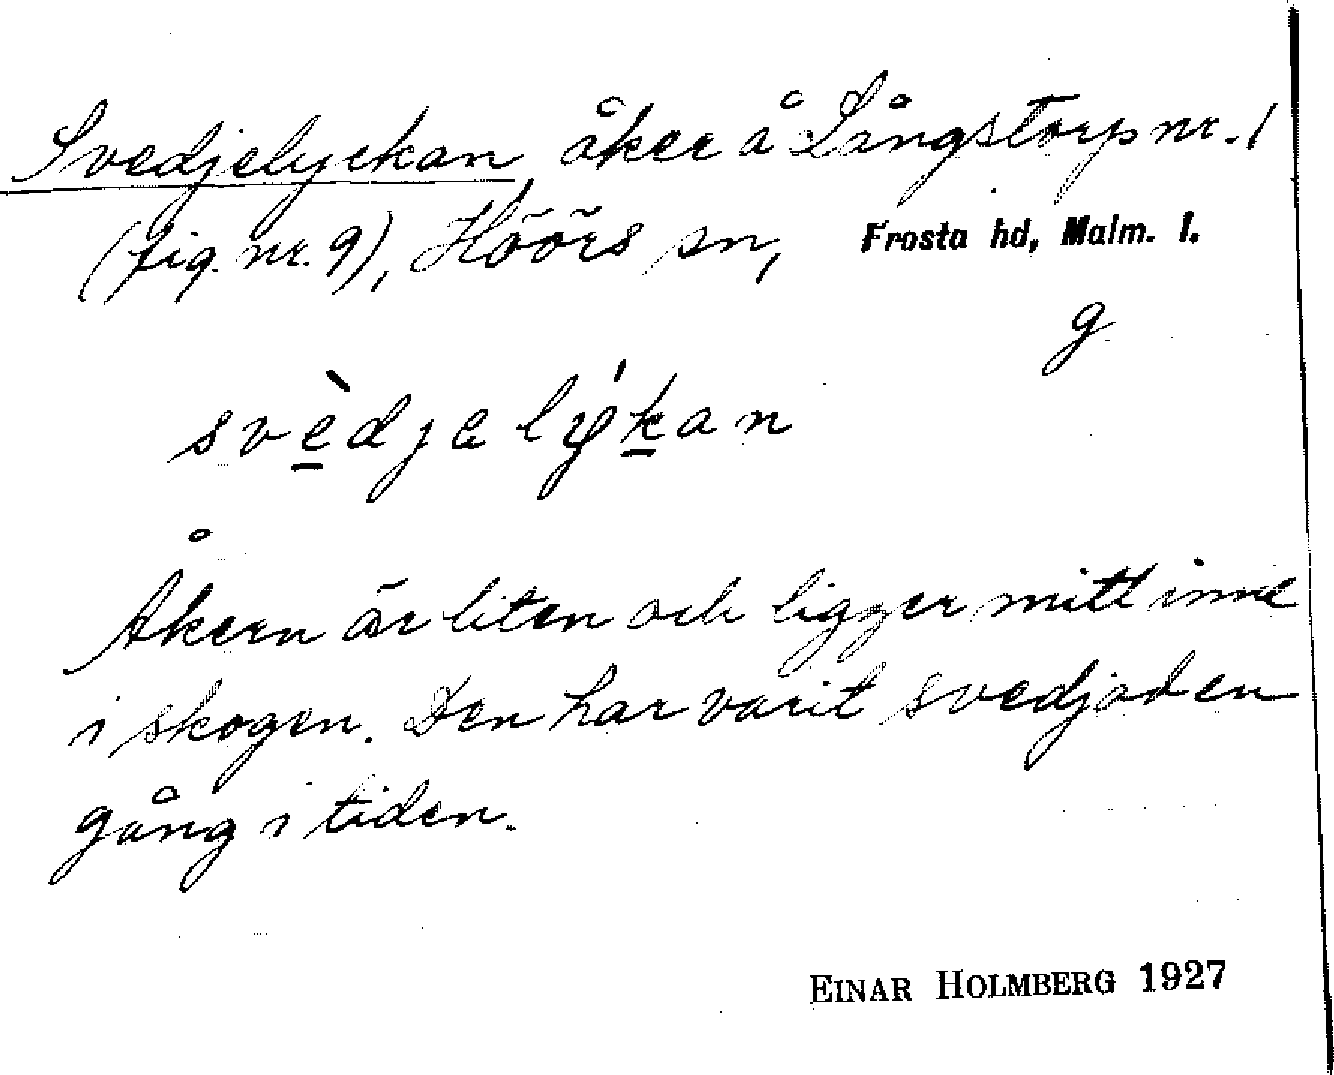 Svedjelyckan, åker å Långstorp nr. 1
(fig. nr. 9), Höörs sn, Frosta hd, Malm. l.
g
svèdjelýkan
Åkern är liten och ligger mitt inne
i skogen. Den har varit svedjad en
gång i tiden.
EINAR HOLMBERG 1927